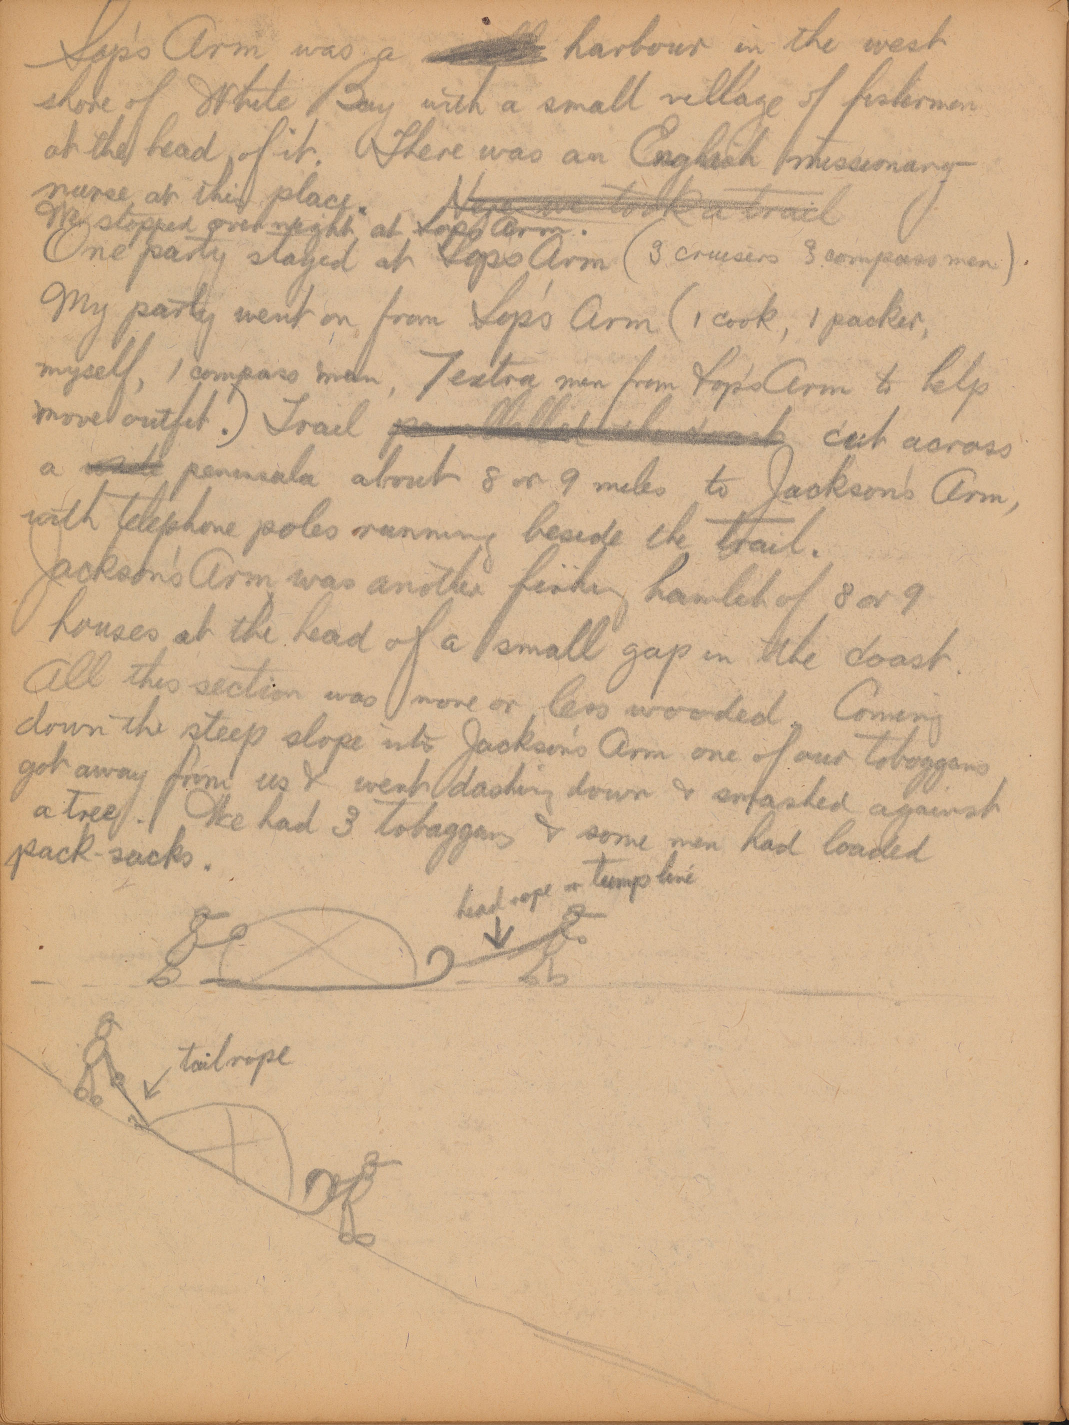 Sop's Arm was a harbour in the west
shore of White Bay with a small village of fishermen
at the head of it. There was an English missionary
nurse at this place. Next we took a trail
We stopped over night at Sop's Arm.
One party stayed at Sop's Arm (3 cruisers 3 compass men).
My party went on from Sop's Arm (1 cook, 1 packer,
myself, 1 compass man, 7 extra men from Sop's Arm to help
move outfit.) Trail parallelled the coast cut across
a penisula about 8 or 9 miles to Jackson's Arm,
with telephone poles running beside the trail.
Jackson's Arm was another fishing hamlet of 8 or 9
houses at the head of a small gap in the coast.
All this section was more or less wooded. Coming
down the steep slope into Jackson's Arm one of our toboggans
got away from us & went dashing down & smashed against
a tree. We had 3 toboggans & some men had loaded
pack-sacks.
head rope or tump line
tail rope